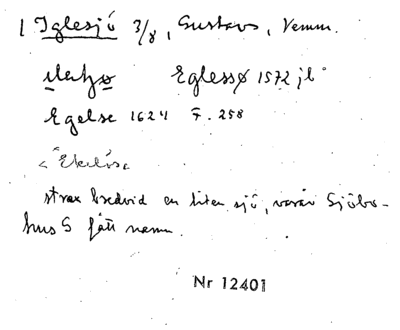 1 Iglesjö 3/8, Gustavs, Vemm.
Eglessø 1572 jb
Egelse 1624 F. 258
strax bredvid en liten sjö, varav Sjöbo-
hus S fått namn.
Nr 12401